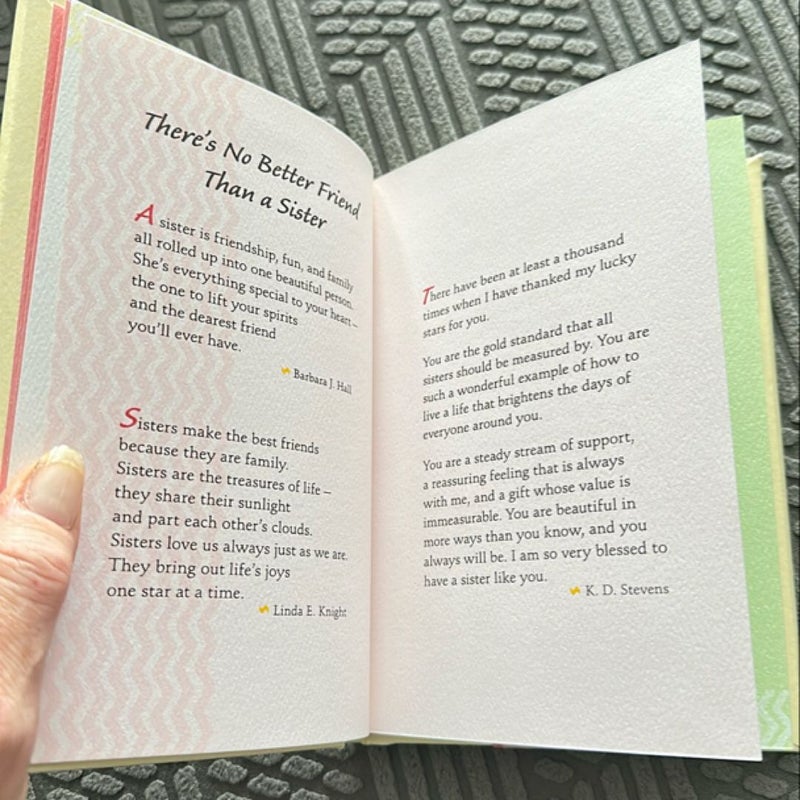 There's No Better Friend
Than a Sister
A sister is friendship, fun, and family
all rolled up into one beautiful person.
She's everything special to your heart –
the one to lift your spirits
and the dearest friend
you'll ever have.
Barbara J. Hall
Sisters make the best friends
because they are family.
Sisters are the treasures of life –
they share their sunlight
and part each other's clouds.
Sisters love us always just as we are.
They bring out life's joys
one star at a time.
Linda E. Knight
There have been at least a thousand
times when I have thanked my lucky
stars for you.
You are the gold standard that all
sisters should be measured by. You are
such a wonderful example of how to
live a life that brightens the days of
everyone around you.
You are a steady stream of support,
a reassuring feeling that is always
with me, and a gift whose value is
immeasurable. You are beautiful in
more ways than you know, and you
always will be. I am so very blessed to
have a sister like you.
K. D. Stevens